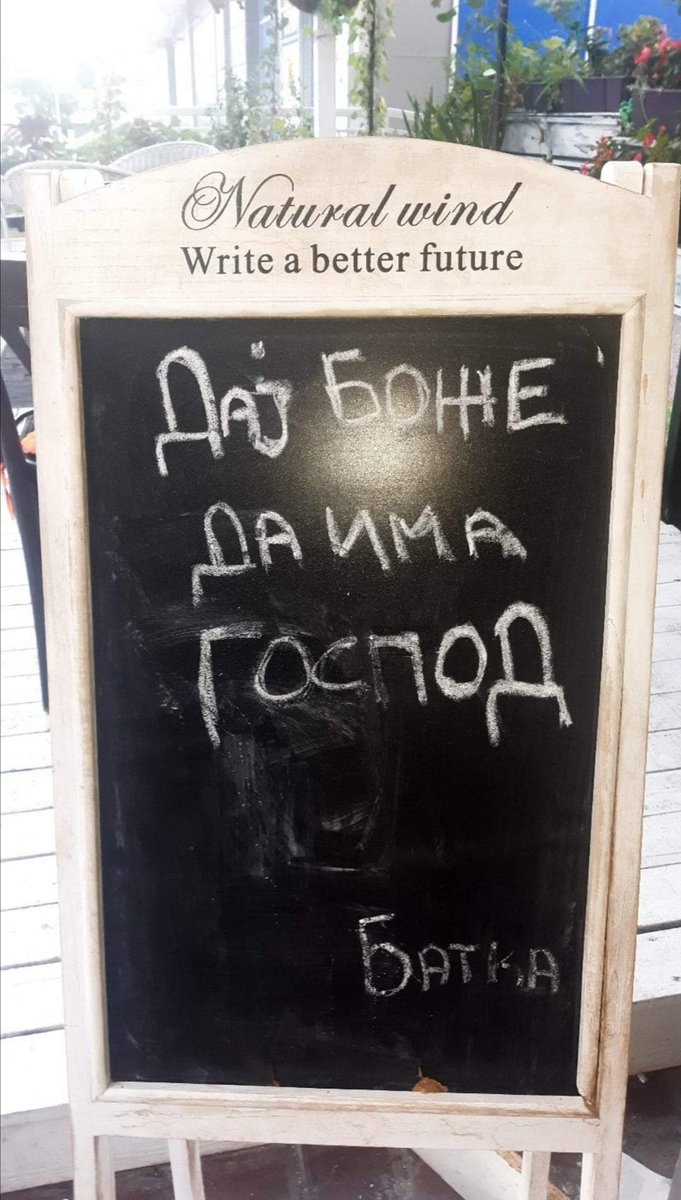 Natural wind
Write a better future
Дај БОЖЕ
ДА ИМА
ГОСПОД
БАТКА